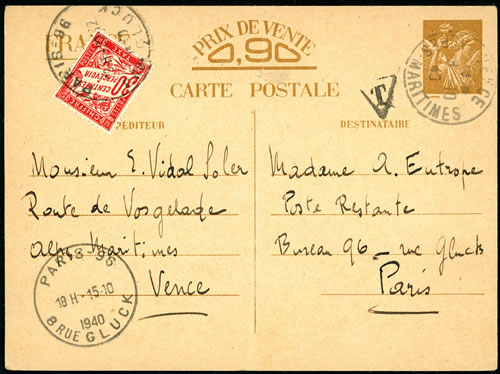 PRIX DE VENTE
0,90
CARTE POSTALE
T
EXPÉDITEUR
DESTINATAIRE
Monsieur E. Vidal Soler
Route de Vosgelade
Alpes Maritimes
Vence
Madame A. Eutrope
Poste Restante
Bureau 96 - rue Gluck
Paris
PARIS-96
18 H - 15.10
1940
8 RUE GLUCK
30
CENTIMES
A PERCEVOIR
VENCE
MARITIMES